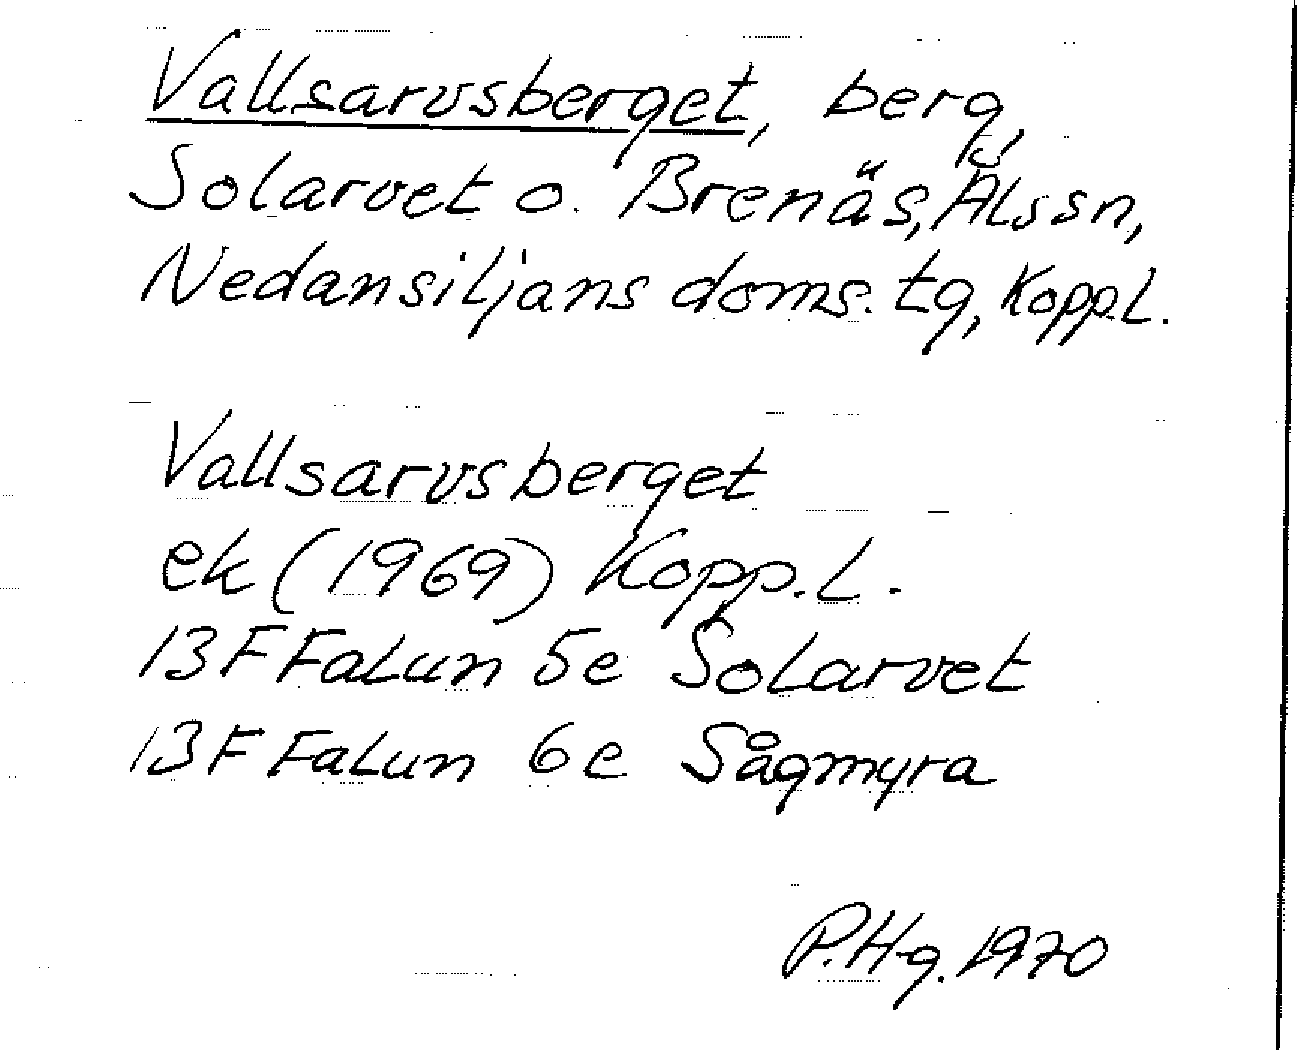 Vallsarvsberget, berg,
Solarvet o. Brenäs, Ålssn,
Nedansiljans doms. tg, Kopp.l.
Vallsarvsberget
ek (1969) Kopp.l.
13F Falun 5e Solarvet
13F Falun 6e Sågmyra
P.Hg. 1970